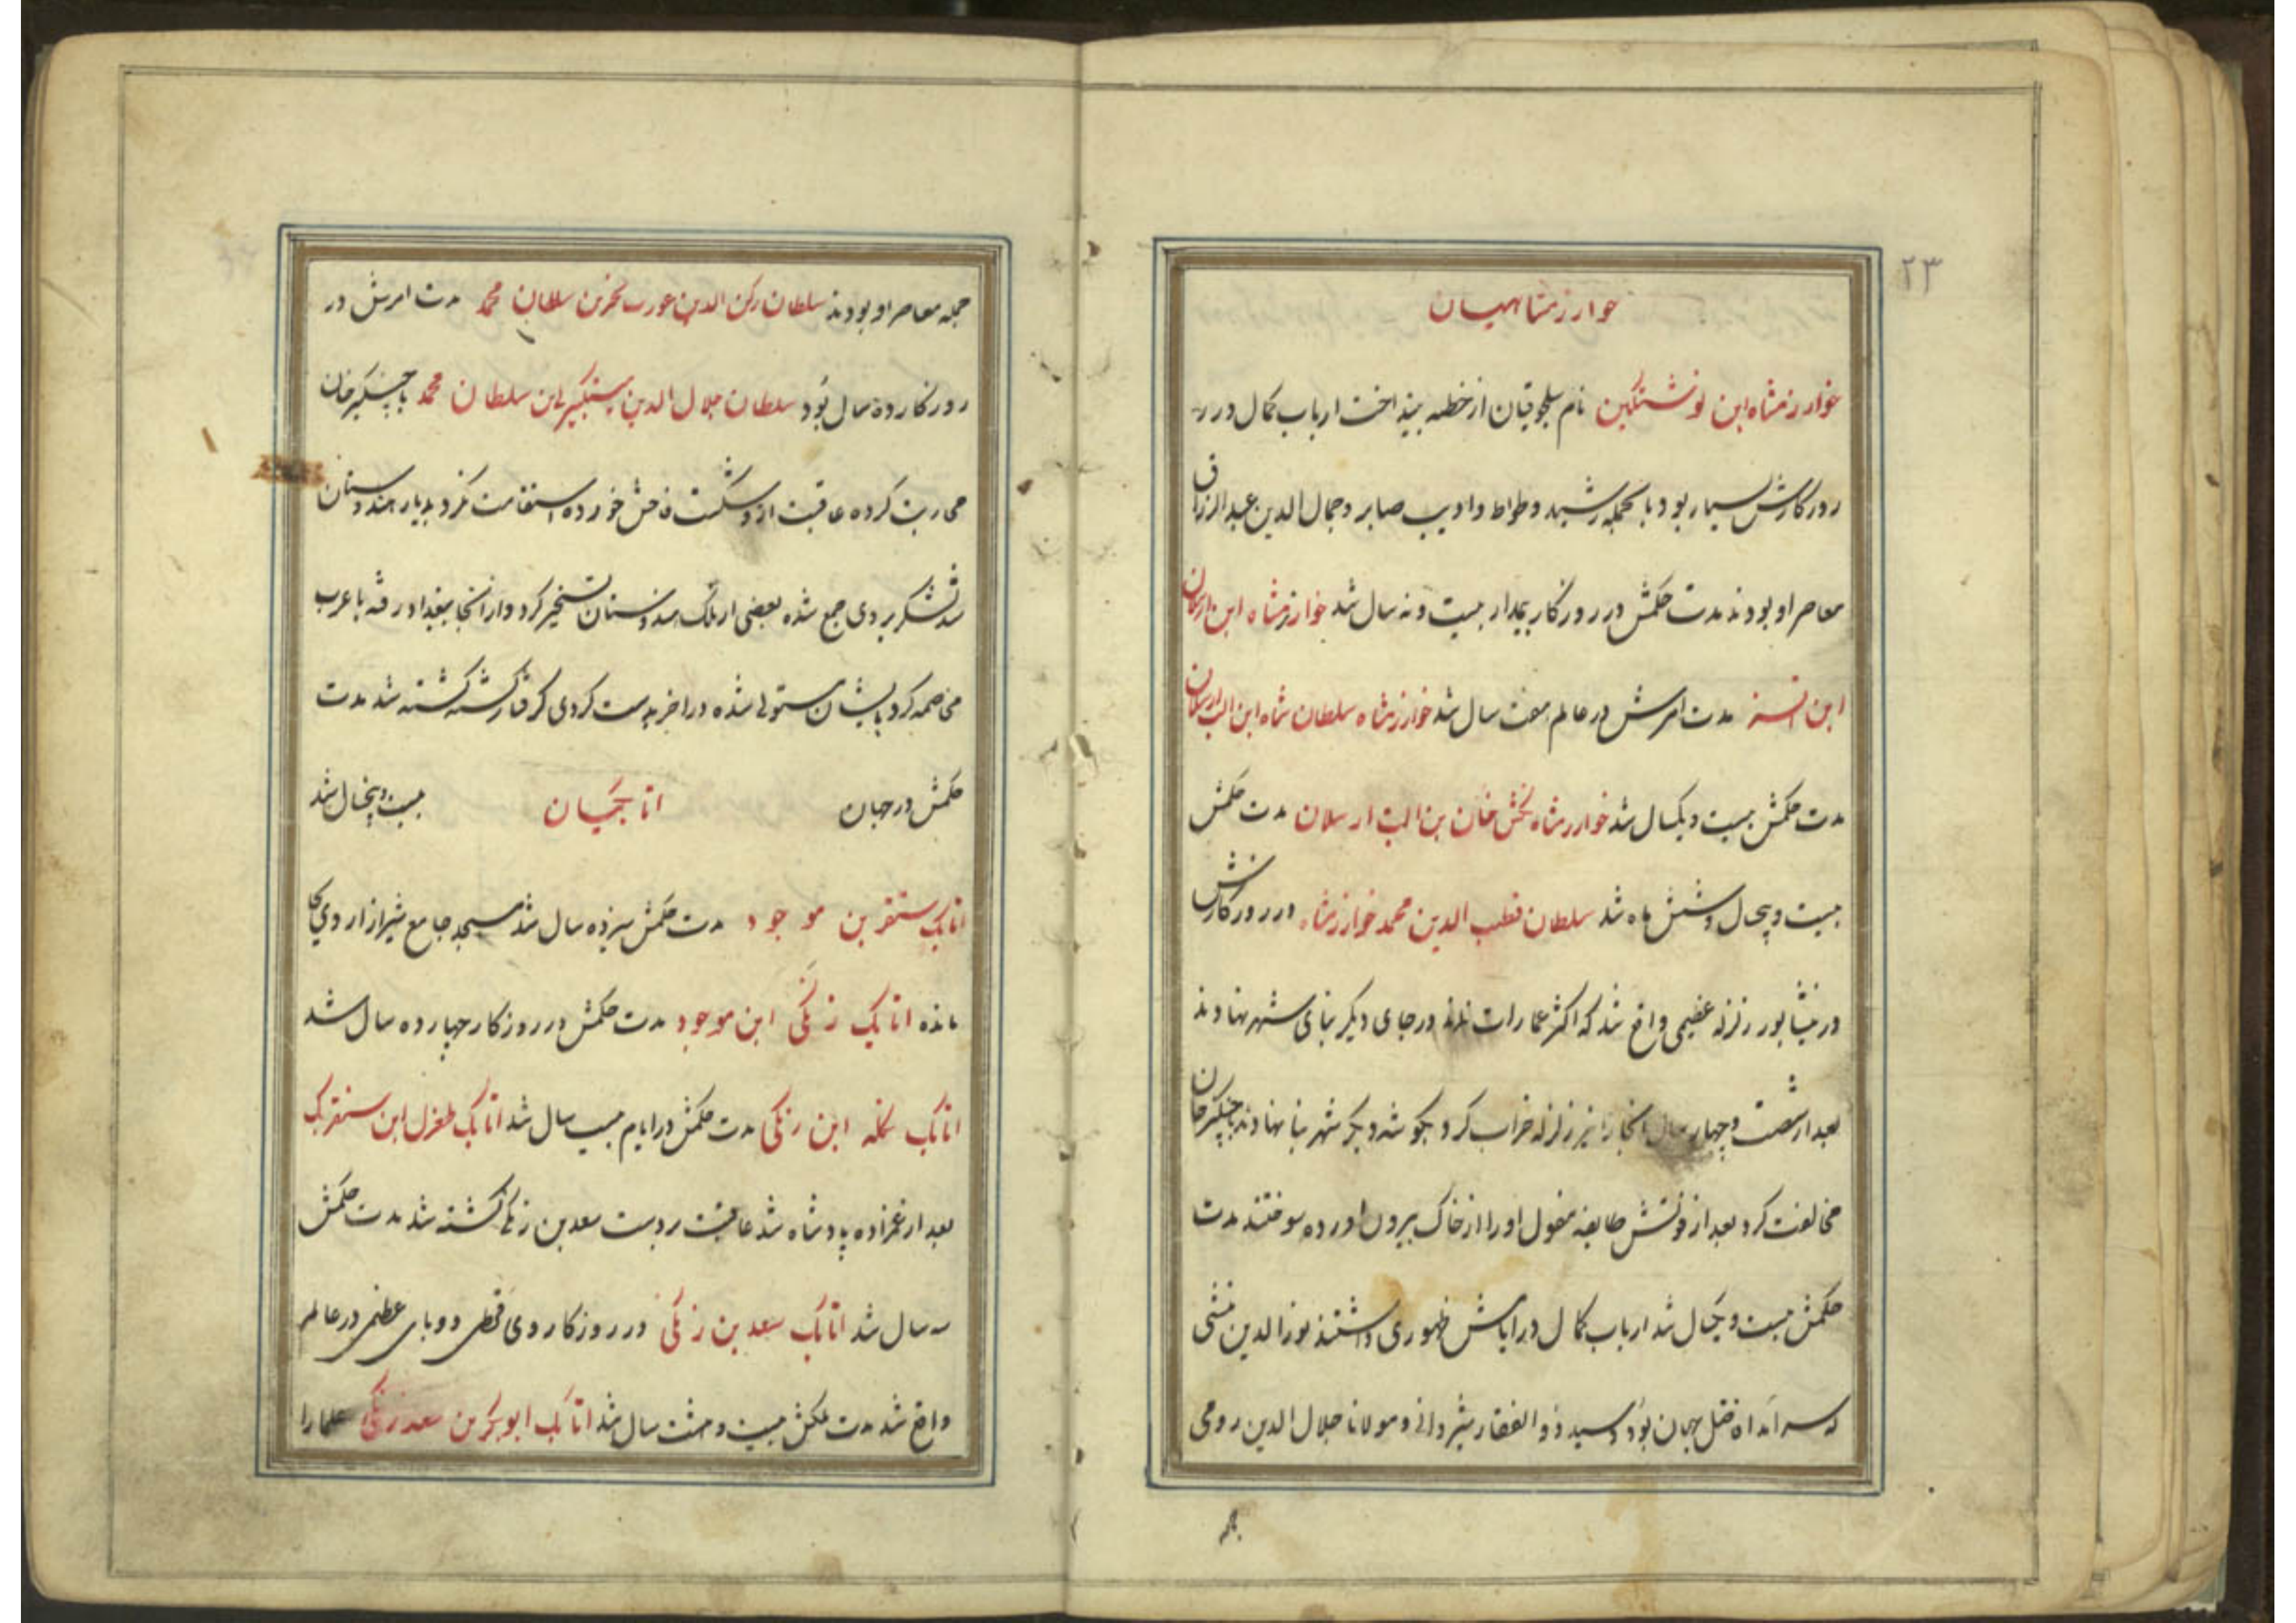 ۲۳
خوارزمشاهیان
خوارزمشاه ابن نوشتکین نام سلجوقیان از خطبه بینداخت ارباب کمال در
روزکارش بسیار بود بالجمله رشید وطواط وادیب صابر وجمال الدین عبدالرزاق
معاصر او بودند مدت حکمش در روزکار پیدار بیست ونه سال شد خوارزمشاه ابن ارسلان
ابن اتسز مدت امرش در عالم هفت سال شد خوارزمشاه سلطان شاه ابن الب ارسلان
مدت حکمش بیست ویکسال شد خوارزمشاه خان بن الب ارسلان مدت حکمش
بیست وپنجسال وشش ماه شد سلطان قطب الدین محمد خوارزمشاه در روزکارش
در نیشابور زلزله عظیمی واقع شد که اکثر عمارات نماند در جای دیکر بنای شهر نهادند
بعد از شصت وچهار سال انجا را نیز زلزله خراب کرد بکوشه دیکر شهر بنا نهادند با چنکیزخان
مخالفت کرد بعد از فوتش طایفه مغول او را از خاک بیرون اورده سوختند مدت
حکمش بیست و سال شد ارباب کمال در ایامش ظهوری داشتند نورالدین منشی
که سرامد اهل جهان بود وسید ذوالفقار شیروانی ومولانا جلال الدین رومی
جمله
جمله معاصر او بودند سلطان رکن الدین بن سلطان محمد مدت امرش در
روزکار ده سال بود سلطان جلال الدین بن سلطان محمد با چنکیزخان
محاربت کرده عاقبت ازو شکست فاحش خورده استقامت نکرد بدیار هندوستان
شد لشکر بر وی جمع شده بعضی از ملک هندوستان تسخیر کرد واز انجا ببغداد رفته با عرب
مخاصمه کرد بایشان مستولی شده در اخر بدست کردی کرفتار کشته کشته شد مدت
حکمش در جهان اتابکیان بیست وپنجسال شد
اتابک سنقر بن موجود مدت حکمش سیزده سال شد مسجد جامع شیراز از وی بجا
مانده اتابک زنکی ابن موجود مدت حکمش در روزکار چهارده سال شد
اتابک تکله ابن زنکی مدت حکمش در ایام بیست سال شد اتابک طغرل ابن سنقر
بعد از عمزاده پادشاه شد عاقبت بر دست سعد بن زنکی کشته شد مدت حکمش
نه سال شد اتابک سعد بن زنکی در روزکار وی قحطی ووبای عظمی در عالم
واقع شد مدت ملکش بیست وهشت سال شد اتابک ابوبکر بن سعد زنکی علما را